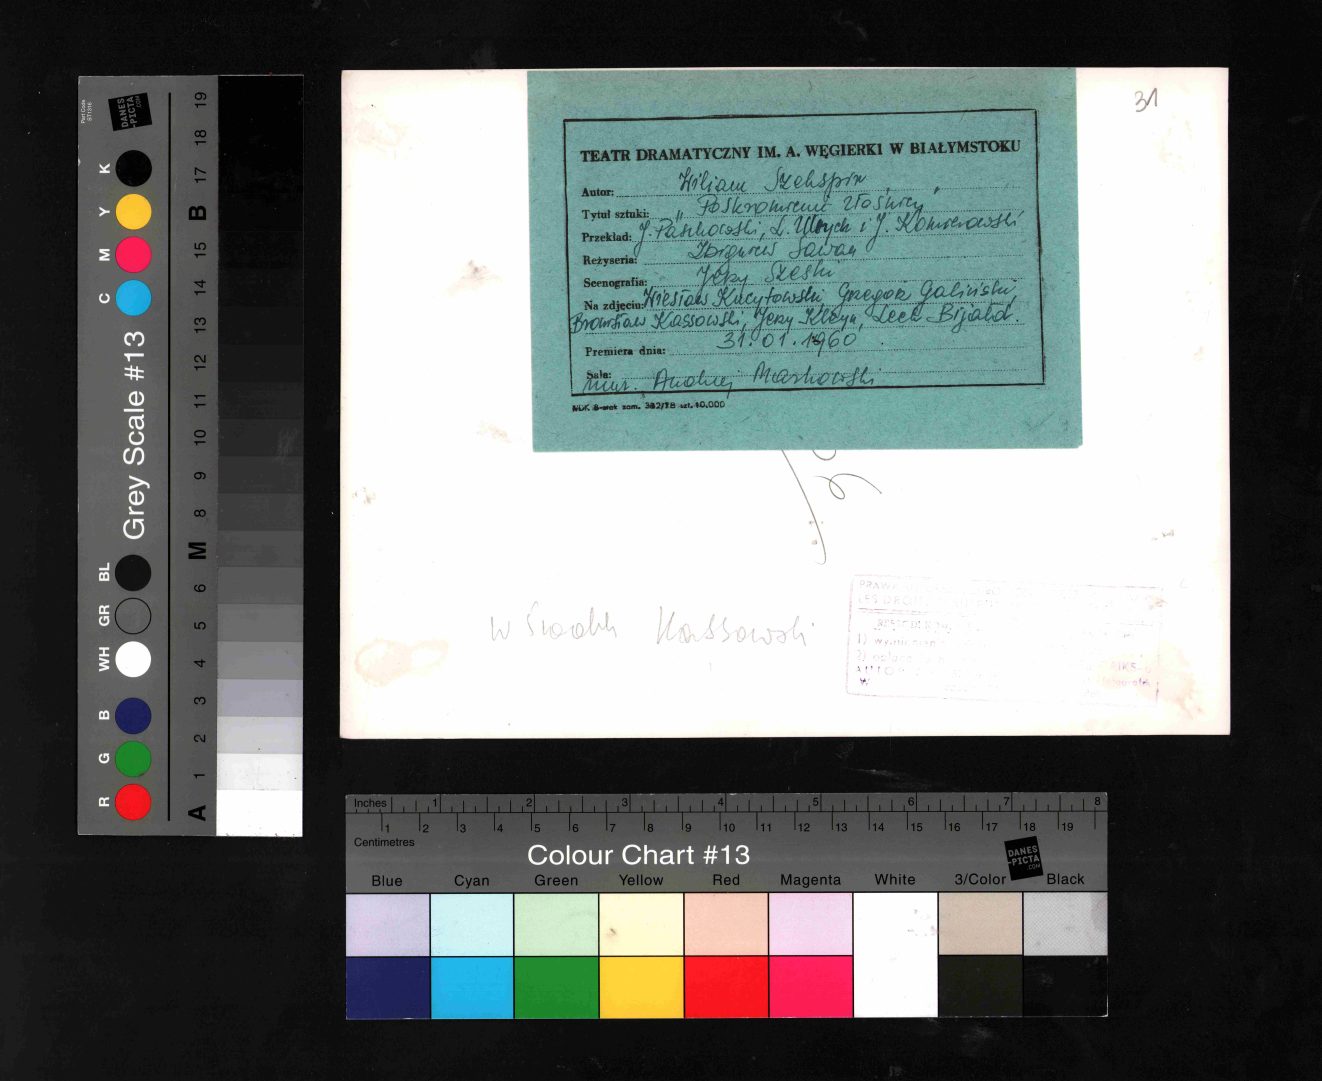 31
TEATR DRAMATYCZNY IM. A. WĘGIERKI W BIAŁYMSTOKU
Autor: Wiliam Szekspir
Tytuł sztuki: „Poskromienie złośnicy"
Przekład: J. Paszkowski, L. Ulrych i J. Komierowski
Reżyseria: Zbigniew Sawan
Scenografia: Jerzy Szeski
Na zdjęciu: Wiesław Kucytowski, Grzegorz Galiński,
Bronisław Kassowski, Jerzy Kłczyn, Lech Bijałd.
Premiera dnia: 31.01.1960
Sala:
muz. Andrzej Markowski
MDK B-stok zam. 382/78 szt. 10.000
W środku Kassowski
PRAWA
1)
2)
Part Code
ST1316
DANES
-PICTA
.COM
Grey Scale #13
K Y M C BL GR WH B G R
19 18 17 B 15 14 13 12 11 10 9 8 M 6 5 4 3 2 1 A
Inches 1 2 3 4 5 6 7 8
1 2 3 4 5 6 7 8 9 10 11 12 13 14 15 16 17 18 19
Centimetres
Colour Chart #13
DANES
-PICTA
.COM
Blue Cyan Green Yellow Red Magenta White 3/Color Black